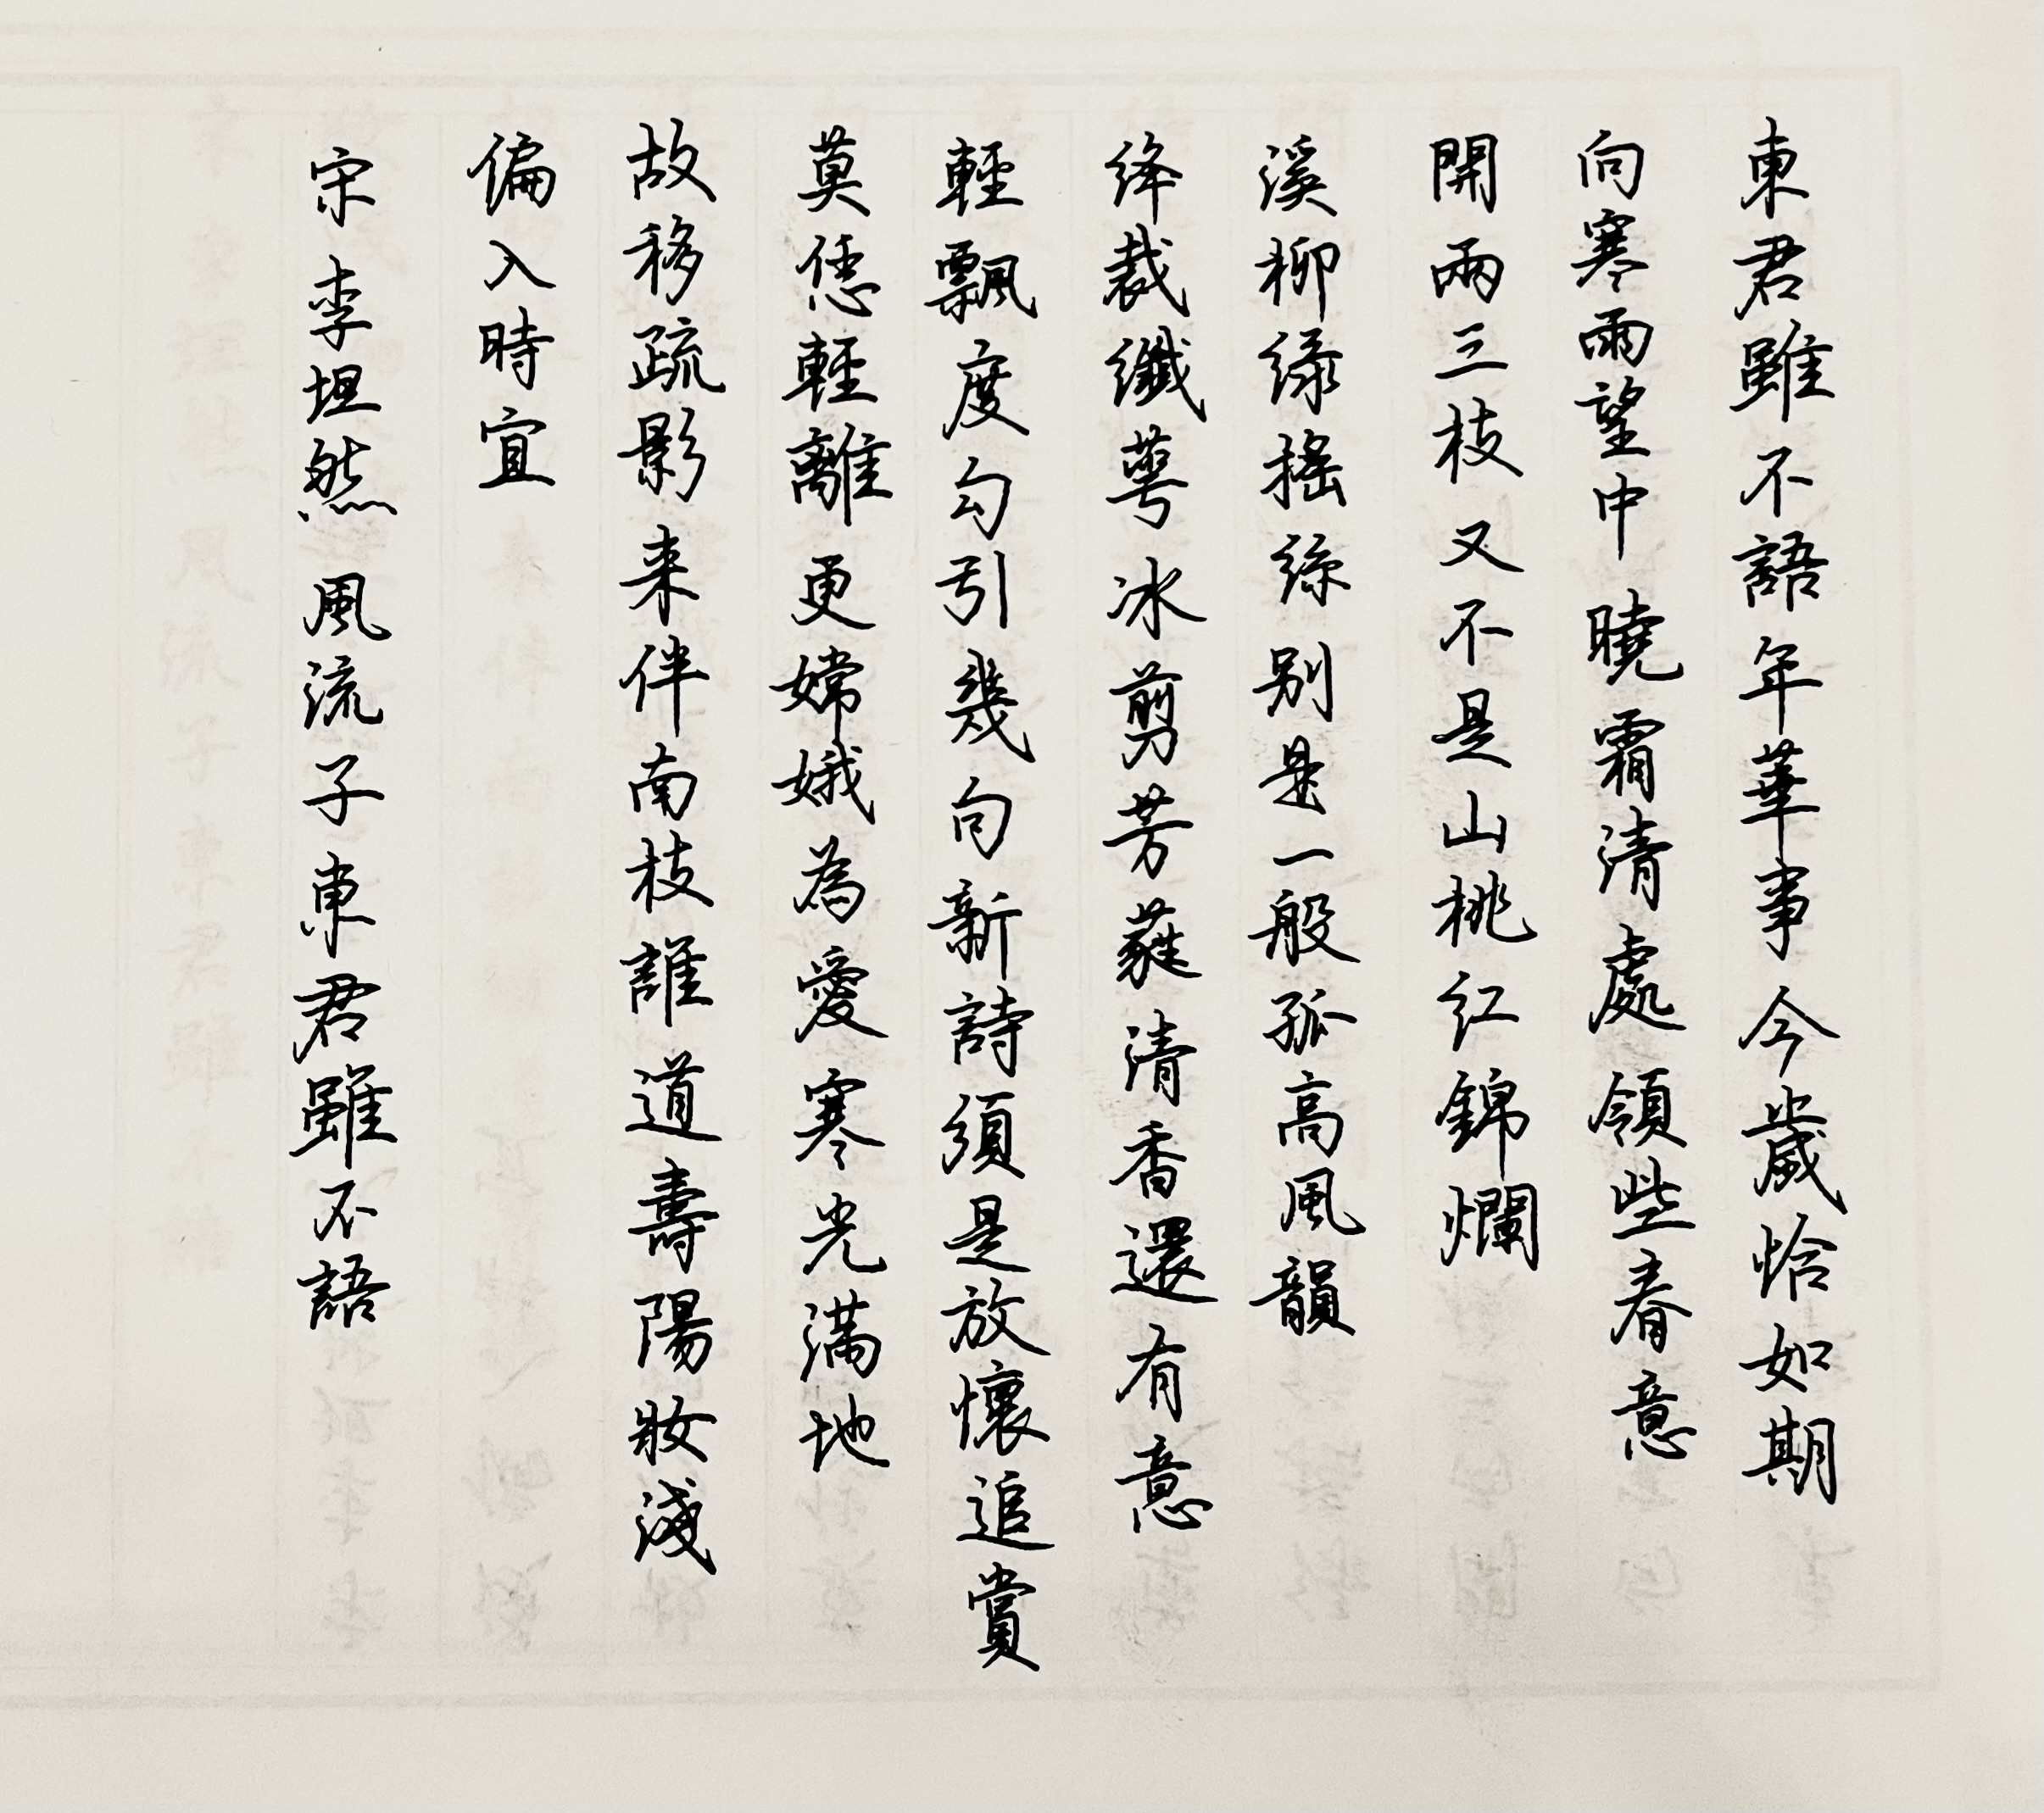 東君雖不語年華事今歲恰如期
向寒雨望中曉霜清處領些春意
開兩三枝又不是山桃紅錦爛
溪柳綠搖絲別是一般孤高風韻
絳裁纖萼冰剪芳蕤清香還有意
輕飄度勾引幾句新詩須是放懷追賞
莫恁輕離更嫦娥為愛寒光滿地
故移疏影来伴南枝誰道壽陽妝淺
偏入時宜
宋李坦然風流子東君雖不語